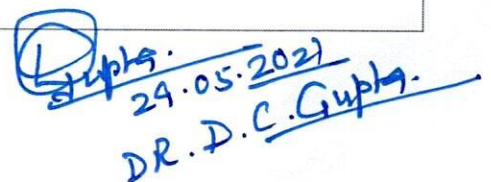 Dgupta.
29.05.2021
DR. D. C. Gupta.